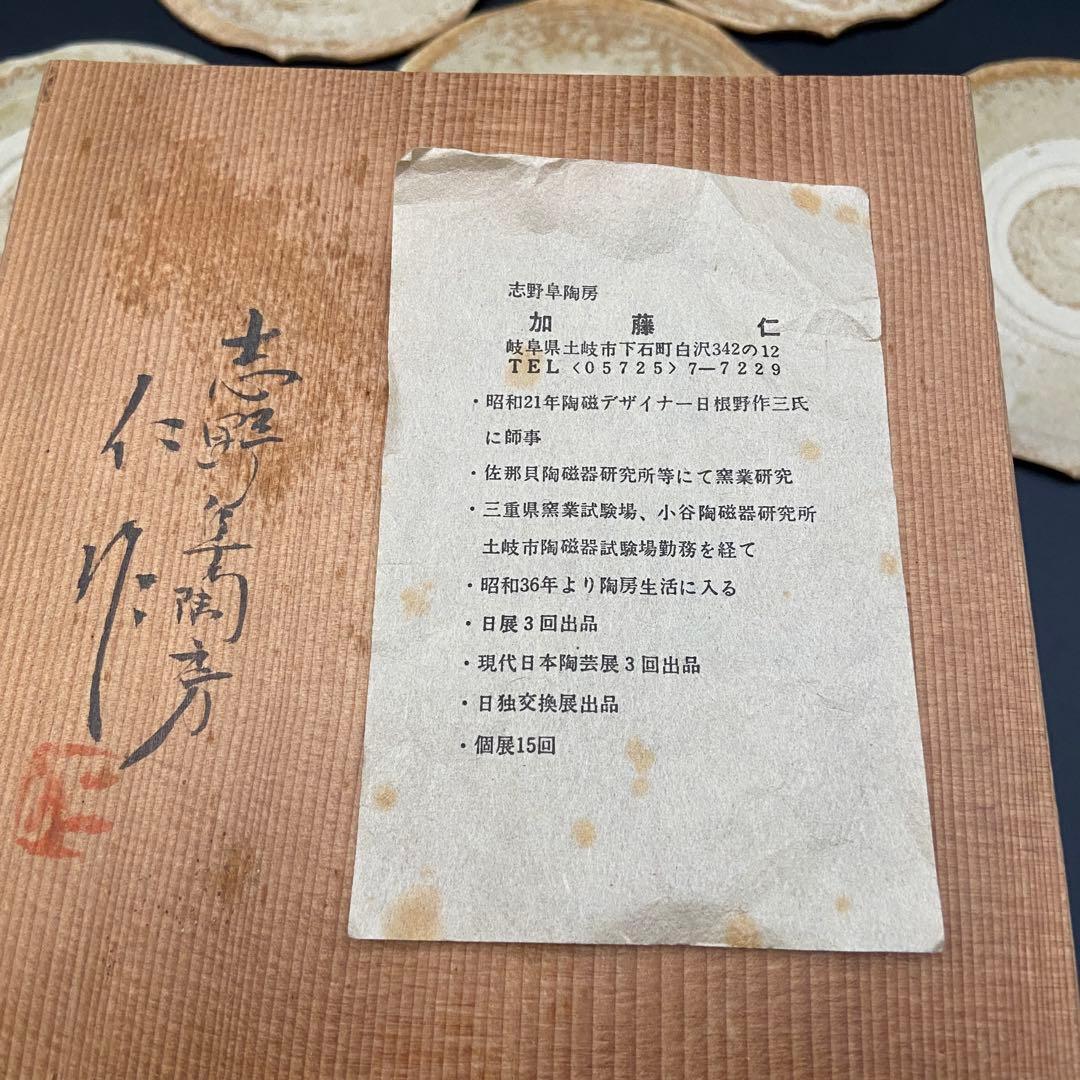 志野阜陶房
仁作
志野阜陶房
加藤仁
岐阜県土岐市下石町白沢342の12
TEL〈05725〉7—7229
・昭和21年陶磁デザイナー日根野作三氏
に師事
・佐那貝陶磁器研究所等にて窯業研究
・三重県窯業試験場、小谷陶磁器研究所
土岐市陶磁器試験場勤務を経て
・昭和36年より陶房生活に入る
・日展3回出品
・現代日本陶芸展3回出品
・日独交換展出品
・個展15回